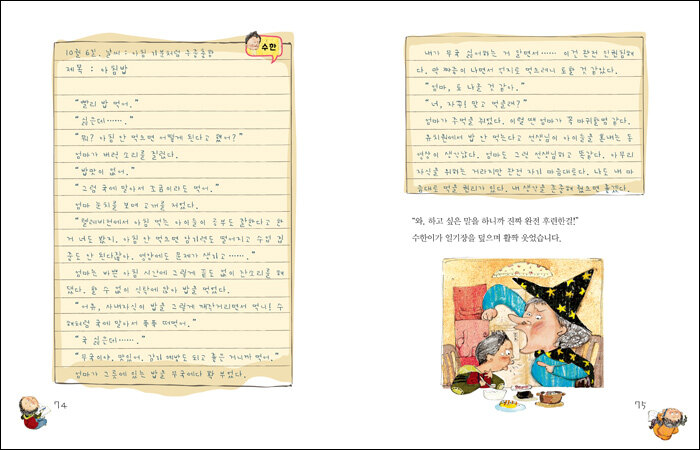 수한
10월 6일. 날씨 : 아침 기분처럼 우중충함
제목 : 아침밥
“빨리 밥 먹어.”
“싫은데…….”
“뭐? 아침 안 먹으면 어떻게 된다고 했어?”
엄마가 버럭 소리를 질렀다.
“밥맛이 없어.”
“그럼 국에 말아서 조금이라도 먹어.”
엄마 눈치를 보며 고개를 저었다.
“텔레비전에서 아침 먹는 아이들이 공부도 잘한다고 한
거 너도 봤지. 아침 안 먹으면 암기력도 떨어지고 수업 집
중도 안 된다잖아. 영양에도 문제가 생기고…….”
엄마는 바쁜 아침 시간에 그렇게 끝도 없이 잔소리를 해
댔다. 할 수 없이 식탁에 앉아 밥을 먹었다.
“어유, 사내자식이 밥을 그렇게 깨작거리면서 먹니! 수
해처럼 국에 말아서 푹푹 떠먹어.”
“국 싫은데…….”
“무국이야, 맛있어. 감기 예방도 되고 좋은 거니까 먹어.”
엄마가 그릇에 있는 밥을 무국에다 확 부었다.
74
내가 무국 싫어하는 거 알면서…… 이건 완전 인권침해
다. 막 짜증이 나면서 억지로 먹으려니 토할 것 같았다.
“엄마, 토 나올 것 같아.”
“너, 자꾸 맞고 먹을래?”
엄마가 주먹을 쥐었다. 이럴 땐 엄마가 꼭 마귀할멈 같다.
유치원에서 밥 안 먹는다고 선생님이 아이들을 혼내는 동
영상이 생각났다. 엄마도 그런 선생님하고 똑같다. 아무리
자식을 위하는 거라지만 완전 자기 마음대로다. 나도 내 마
음대로 먹을 권리가 있다. 내 생각을 존중해 줬으면 좋겠다.
“와, 하고 싶은 말을 하니까 진짜 완전 후련한걸!”
수한이가 일기장을 덮으며 활짝 웃었습니다.
75